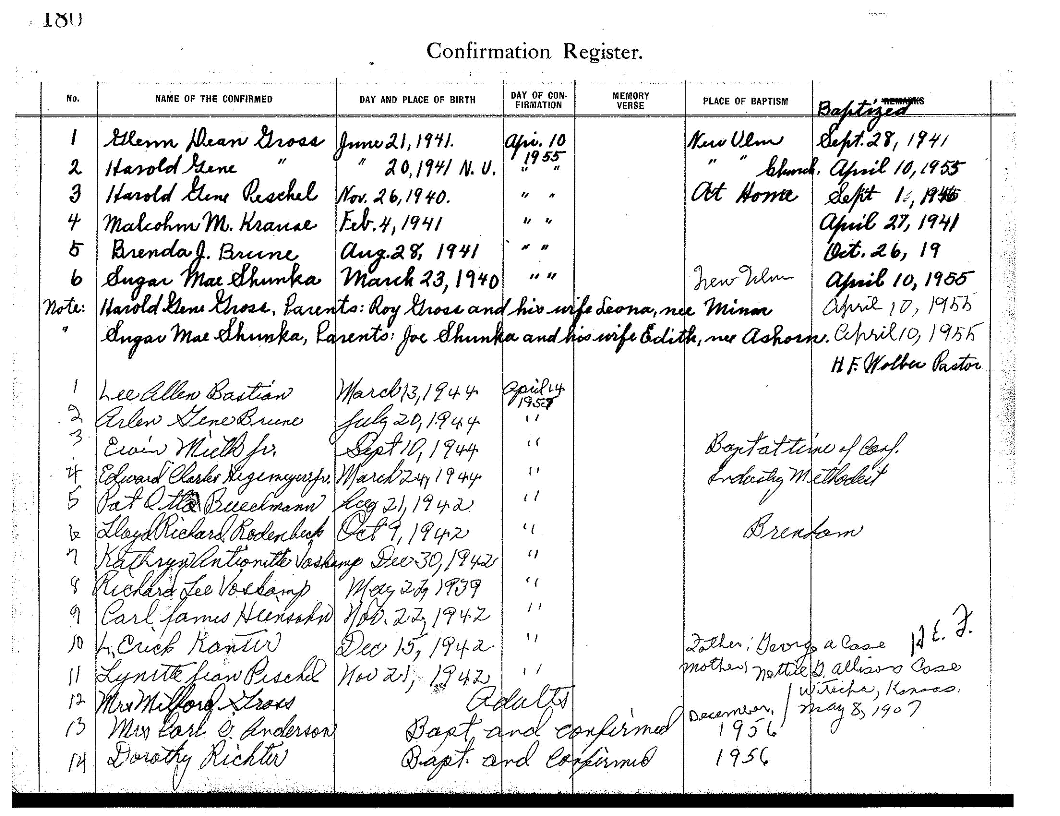 180
Confirmation Register.
No. NAME OF THE CONFIRMED DAY AND PLACE OF BIRTH DAY OF CON-FIRMATION MEMORY VERSE PLACE OF BAPTISM REMARKS Baptized
1 Glenn Dean Gross June 21, 1941. Apr. 10 1955 New Ulm Sept. 28, 1941
2 Harold Gene " " 20, 1941 N. U. " " " " Church. April 10, 1955
3 Harold Gene Peschel Nov. 26, 1940. " " At Home Sept 1,
4 Malcohm M. Krause Feb. 4, 1941 " " April 27, 1941
5 Brenda J. Brune Aug. 28, 1941 " " Oct. 26, 19
6 Sugar Mae Shunka March 23, 1940 " " New Ulm April 10, 1955
Note: Harold Gene Gross, Parents: Roy Gross and his wife Leona, nee Minar April 10, 1955
" Sugar Mae Shunka, Parents: Joe Shunka and his wife Edith, nee Ashorn. April 10, 1955
H. F. Wolber Pastor
1 Lee Allen Bastian March 13, 1944 April 14 1957
2 Arlen Gene Brune July 20, 1944 "
3 Erwin Mieth Jr. Sept 10, 1944 " Bapt at time of Conf.
4 Edward Charles Hegemeyer Jr. March 24, 1944 " Industry Methodist
5 Pat Otto Bueckmann Aug 21, 1942 "
6 Lloyd Richard Rodenbeck Oct 9, 1942 " Brenham
7 Kathryn Antionette Voskamp Dec 30, 1942 "
8 Richard Lee Voskamp May 27, 1939 "
9 Carl James Heinsohn Nov. 22, 1942 "
10 L. Erich Kanter Dec 15, 1942 " Father: George a Case
11 Lynette Jean Peschel Nov 21, 1942 " Mother: Nettie G. allison Case
12 Mrs Milford Gross Adults Witecha, Kansas. May 8, 1907
13 Mrs Carl C. Anderson Bapt. and confirmed December, 1956
14 Dorothy Richter Bapt. and confirmed 1956